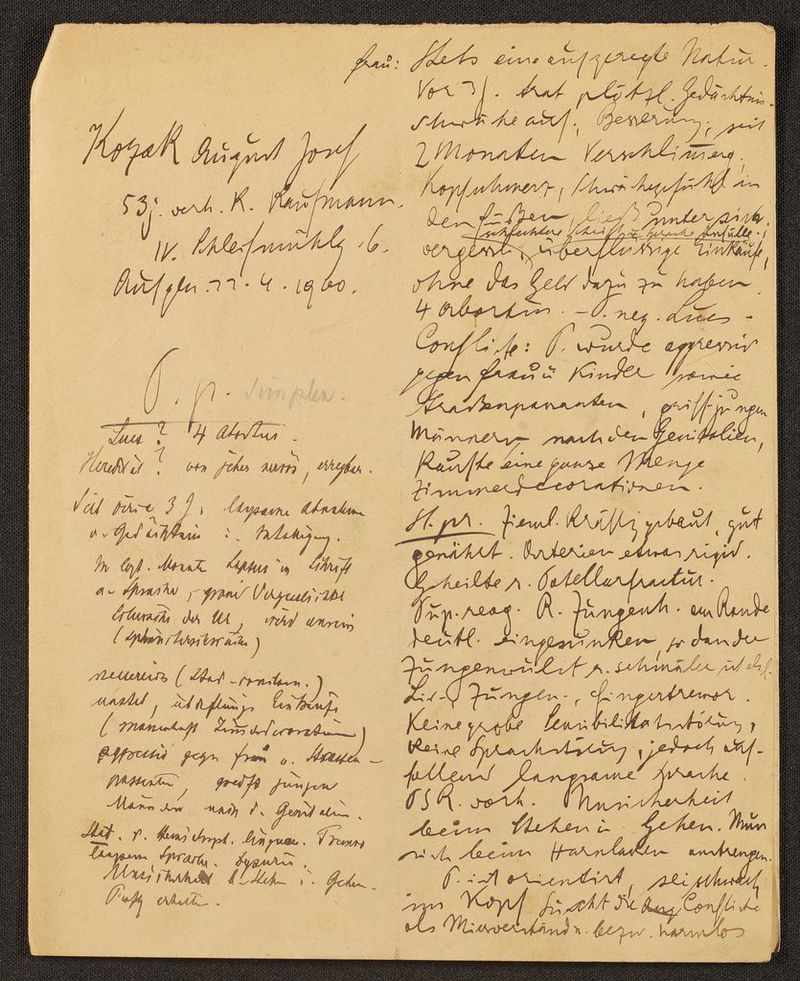 Kozak August Josef
53j. verh. K. Kaufmann.
IV. Schleifmühlg. 6.
Aufgen. 22. 4. 1900.
P. p. Simplex.
Lues? 4 Abortus.
Heredität? von jeher nervös, erregbar.
Seit circa 3 J. langsame Abnahme
d. Gedächtnis
In letzt. Monate Lapsus in Schrift
u. Sprache, grosse Vergesslichkeit
(Sphincterschwäche)
nastet, überflüssige Einkäufe
(massenhaft Zimmerdecoration)
aggressiv gegen Frau u. Strassen-
passanten, greift jungen
Männern nach d. Genitalien.
Stat. r. Hemiatroph. linguae. Tremor
langsame Sprache. Dysurie.
Unsicherheit b. Stehen u. Gehen.
PSR erhalten.
Frau: Stets eine aufgeregte Natur.
Vor 3 J. trat plötzl. Gedächtnis-
schwäche auf; Besserung; seit
2 Monaten Verschlimmerg.
Kopfschmerz, Schwächegefühl in
den Füßen, ließ unter sich;
vergessl., überflüssige Einkäufe,
ohne das Geld dazu zu haben.
4 Abortus. – P. neg. Lues –
Conflicte: P. wurde aggressiv
gegen Frau u Kinder sowie
Straßenpassanten, griff jungen
Männern nach den Genitalien,
kaufte eine ganze Menge
Zimmerdecorationen.
St. pr. Ziemlich kräftig gebaut, gut
genährt. Arterien etwas rigid.
Geheilte r. Patellarfractur.
Pup. reag. R. Zungenh. am Rande
deutl. eingesunken, so dass der
Zungenwulst r. schmäler ist als l.
Lid-, Zungen-, Fingertremor.
Keine grobe Sensibilitätsstörung,
keine Sprachstörung, jedoch auf-
fallend langsame Sprache.
PSR. vorh. Unsicherheit
beim Stehen u Gehen. Muss
sich beim Harnlassen anstrengen.
P. ist orientirt, sei schwach
im Kopf. Sucht die Conflicte
als Missverständn. bezw. harmlos